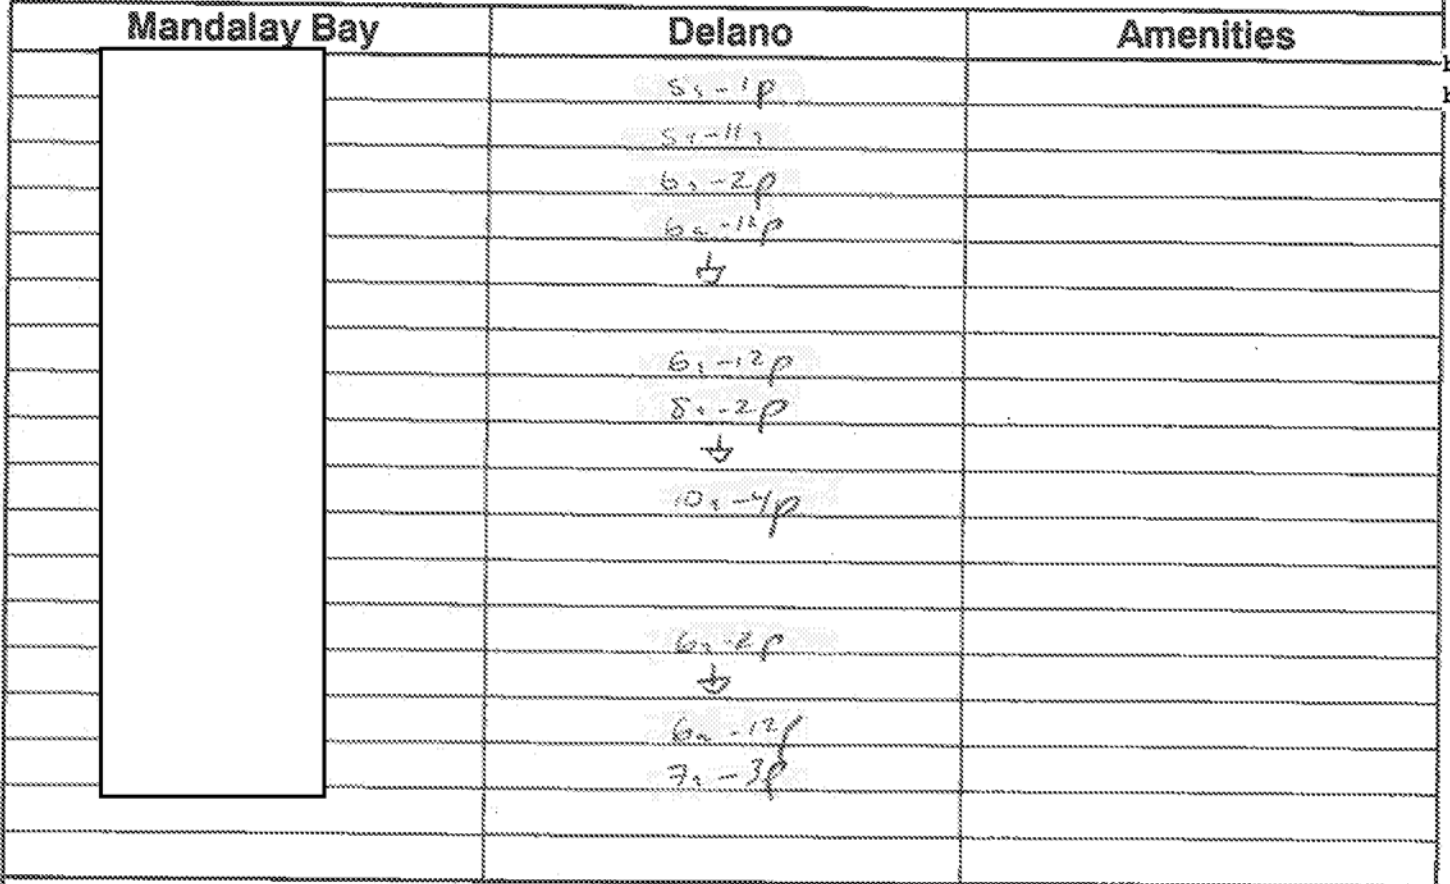 Mandalay Bay Delano Amenities
5a-1p
5a-11a
6a-2p
6a-12p
6a-12p
8a-2p
10a-4p
6a-2p
6a-12p
7a-3p